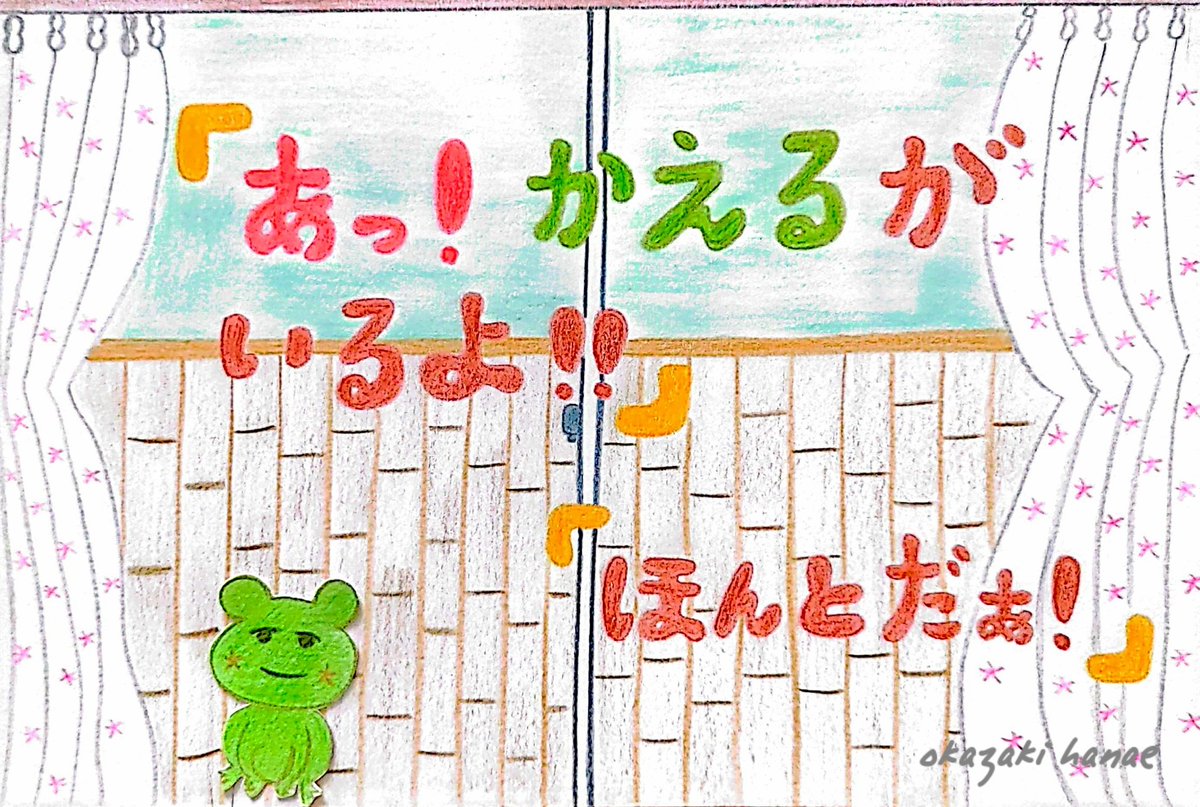 『あっ!かえるが
いるよ!!』
『ほんとだぁ!』
okazaki hanae